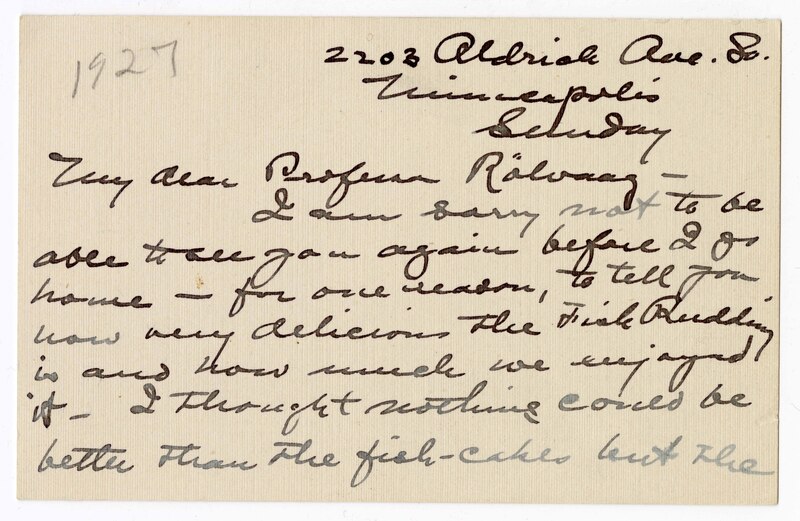 1927
2203 Aldrich Ave. So.
Minneapolis
Sunday
My dear Professor Rölvaag –
I am sorry not to be
able to see you again before I go
home – for one reason, to tell you
how very delicious the Fish Pudding
is and how much we enjoyed
it – I thought nothing could be
better than the fish-cakes but the